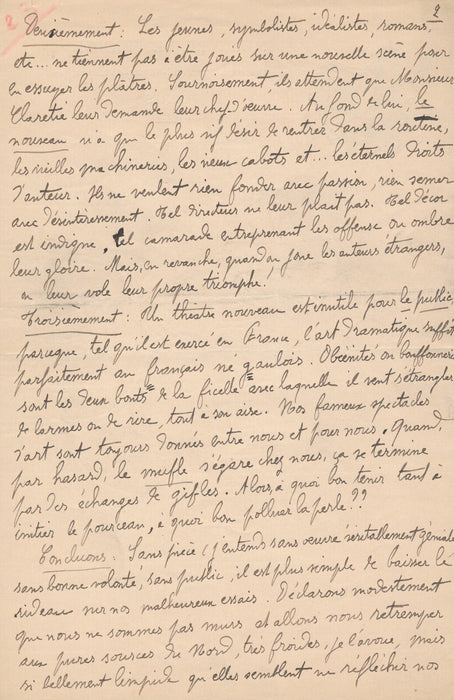 2
2
Deuxièmement : Les jeunes, symbolistes, idéalistes, romans,
etc... ne tiennent pas à être joués sur une nouvelle scène pour
en essuyer les plâtres. Sournoisement, ils attendent que Monsieur
Claretie leur demande leur chef d'œuvre. Au fond de lui, le
nouveau n'a que le plus vif désir de rentrer dans la routine,
les vieilles machineries, les vieux cabots et... les éternels droits
d'auteur. Ils ne veulent rien fonder avec passion, rien semer
avec désintéressement. Tel directeur ne leur plaît pas. Tel décor
est indigne, tel camarade entreprenant les offense ou ombre
leur gloire. Mais, en revanche, quand on joue les auteurs étrangers,
on leur vole leur propre triomphe !
Troisièmement : Un théâtre nouveau est inutile pour le public,
parceque, tel qu'il est exercé en France, l'art dramatique suffit
parfaitement au français né gaulois. Obscénités ou bouffonneries
sont les deux bouts de la ficelle avec laquelle il veut s'étrangler
de larmes ou de rire, tout à son aise. Nos fameux spectacles
d'art sont toujours donnés entre nous et pour nous. Quand,
par hasard, le mufle s'égare chez nous, ça se termine
par des échanges de gifles. Alors, à quoi bon tenir tant à
initier le pourceau, à quoi bon polluer la perle ??
Concluons : Sans pièce (j'entends sans œuvre véritablement géniale)
sans bonne volonté, sans public, il est plus simple de baisser le
rideau sur nos malheureux essais. Déclarons modestement
que nous ne sommes pas murs et allons nous retremper
aux pures sources du Nord, très froides, je l'avoue, mais
si bellement limpides qu'elles semblent ne réfléchir nos